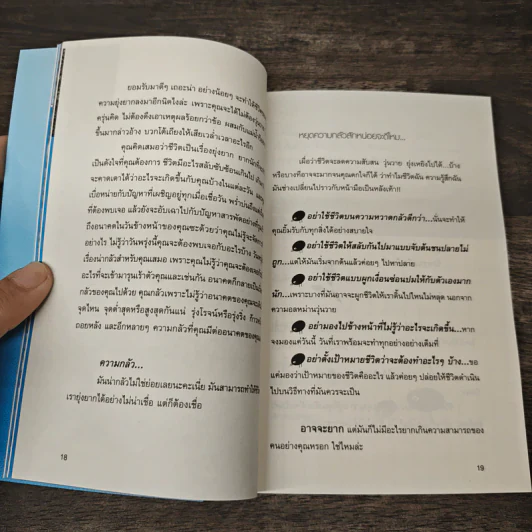 ยอมรับมาดีๆ เถอะน่า อย่างน้อยๆ จะทำให้ชีวิต
ความยุ่งยากลงมาอีกนิดไงล่ะ เพราะคุณจะได้ไม่ต้อง
ครุ่นคิด ไม่ต้องดึงเอาเหตุผลร้อยกว่าข้อ ผสมกับ
ขึ้นมากล่าวอ้าง บวกโต้เถียงให้เสียเวล่ำเวลาอะไรอีก
คุณคิดเสมอว่าชีวิตเป็นเรื่องยุ่งยาก ยากนัก
เป็นดังใจที่คุณต้องการ ชีวิตมีอะไรสลับซับซ้อนเกินไป
จะคาดเดาได้ว่าอะไรจะเกิดขึ้นกับคุณบ้างในแต่ละวัน
เบื่อหน่ายกับปัญหาที่เผชิญอยู่ทุกเมื่อเชื่อวัน พร่ำบ่น
ที่ต้องพบเจอ แล้วยังจะอับเฉาไปกับปัญหาสารพัดอย่าง
ถึงอนาคตในวันข้างหน้าของคุณซะด้วยว่าคุณไม่รู้จะ
อย่างไร ไม่รู้ว่าวันพรุ่งนี้คุณจะต้องพบเจอกับอะไรบ้าง
เรื่องน่ากลัวสำหรับคุณเสมอ เพราะคุณไม่รู้ว่าคุณจะต้อง
อะไรที่จะเข้ามารุมเร้าตัวคุณและเช่นกัน อนาคตก็กลายเป็น
กลัวของคุณไปด้วย คุณกลัวเพราะไม่รู้ว่าอนาคตของคุณจะ
จุดไหน จุดต่ำสุดหรือสูงสุดกันแน่ รุ่งโรจน์หรือรุ่งริ่ง
ถอยหลัง และอีกหลายๆ ความกลัวที่คุณมีต่ออนาคตของ
ความกลัว...
มันน่ากลัวไม่ใช่ย่อยเลยนะคะเนี่ย มันสามารถทำให้
เรายุ่งยากได้อย่างไม่น่าเชื่อ แต่ก็ต้องเชื่อ
18
หยุดความกลัวสักหน่อยจะดีไหม...
เมื่อว่าชีวิตจะลดความสับสน วุ่นวาย ยุ่งเหยิงไปได้...บ้าง
หรือบางทีอาจจะมากจนคุณตกใจก็ได้ ว่าทำไมชีวิตฉัน ความรู้สึกฉัน
มันช่างเปลี่ยนไปราวกับหน้ามือเป็นหลังเท้า!!
อย่าใช้ชีวิตบนความหวาดกลัวดีกว่า...นั่นจะทำให้
คุณยิ้มรับกับทุกสิ่งได้อย่างสบายใจ
อย่าใช้ชีวิตให้สลับกันไปมาแบบจับต้นชนปลายไม่
ถูก...แต่ให้มันเริ่มจากต้นแล้วค่อยๆ ไปหาปลาย
อย่าใช้ชีวิตแบบผูกเงื่อนซ่อนปมให้กับตัวเองมาก
นัก...เพราะบางทีมันอาจจะผูกชีวิตให้เราดิ้นไปไหนไม่หลุด นอกจาก
ความอลหม่านวุ่นวาย
อย่ามองไปข้างหน้าที่ไม่รู้ว่าอะไรจะเกิดขึ้น...หาก
จงมองแค่วันนี้ วันที่เราพร้อมจะทำทุกอย่างอย่างเต็มที่
อย่าตั้งเป้าหมายชีวิตว่าจะต้องทำอะไรๆ บ้าง...ขอ
แค่มองว่าเป้าหมายของชีวิตคืออะไร แล้วค่อยๆ ปล่อยให้ชีวิตดำเนิน
ไปบนวิถีทางที่มันควรจะเป็น
อาจจะยาก แต่มันก็ไม่มีอะไรยากเกินความสามารถของ
คนอย่างคุณหรอก ใช่ไหมล่ะ
19